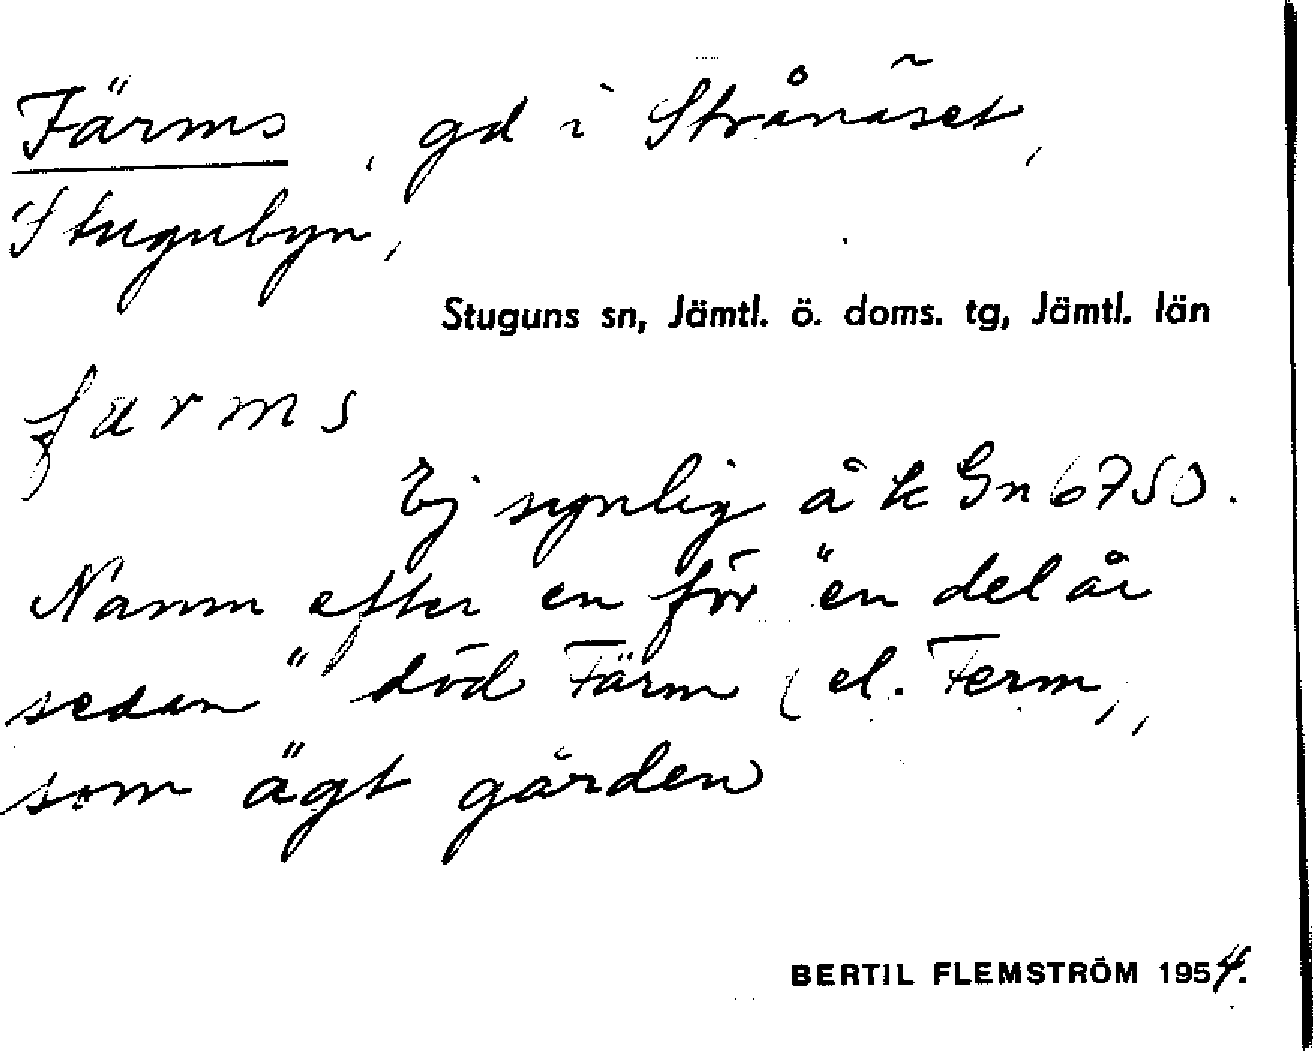 Färms, gd i Strånäset,
Stugubyn,
Stuguns sn, Jämtl. ö. doms. tg, Jämtl. län
farms
Ej synlig å k Gn 6750.
Namn efter en för "en del år
sedan" död Färm (el. Ferm),
som ägt gården
BERTIL FLEMSTRÖM 1954.